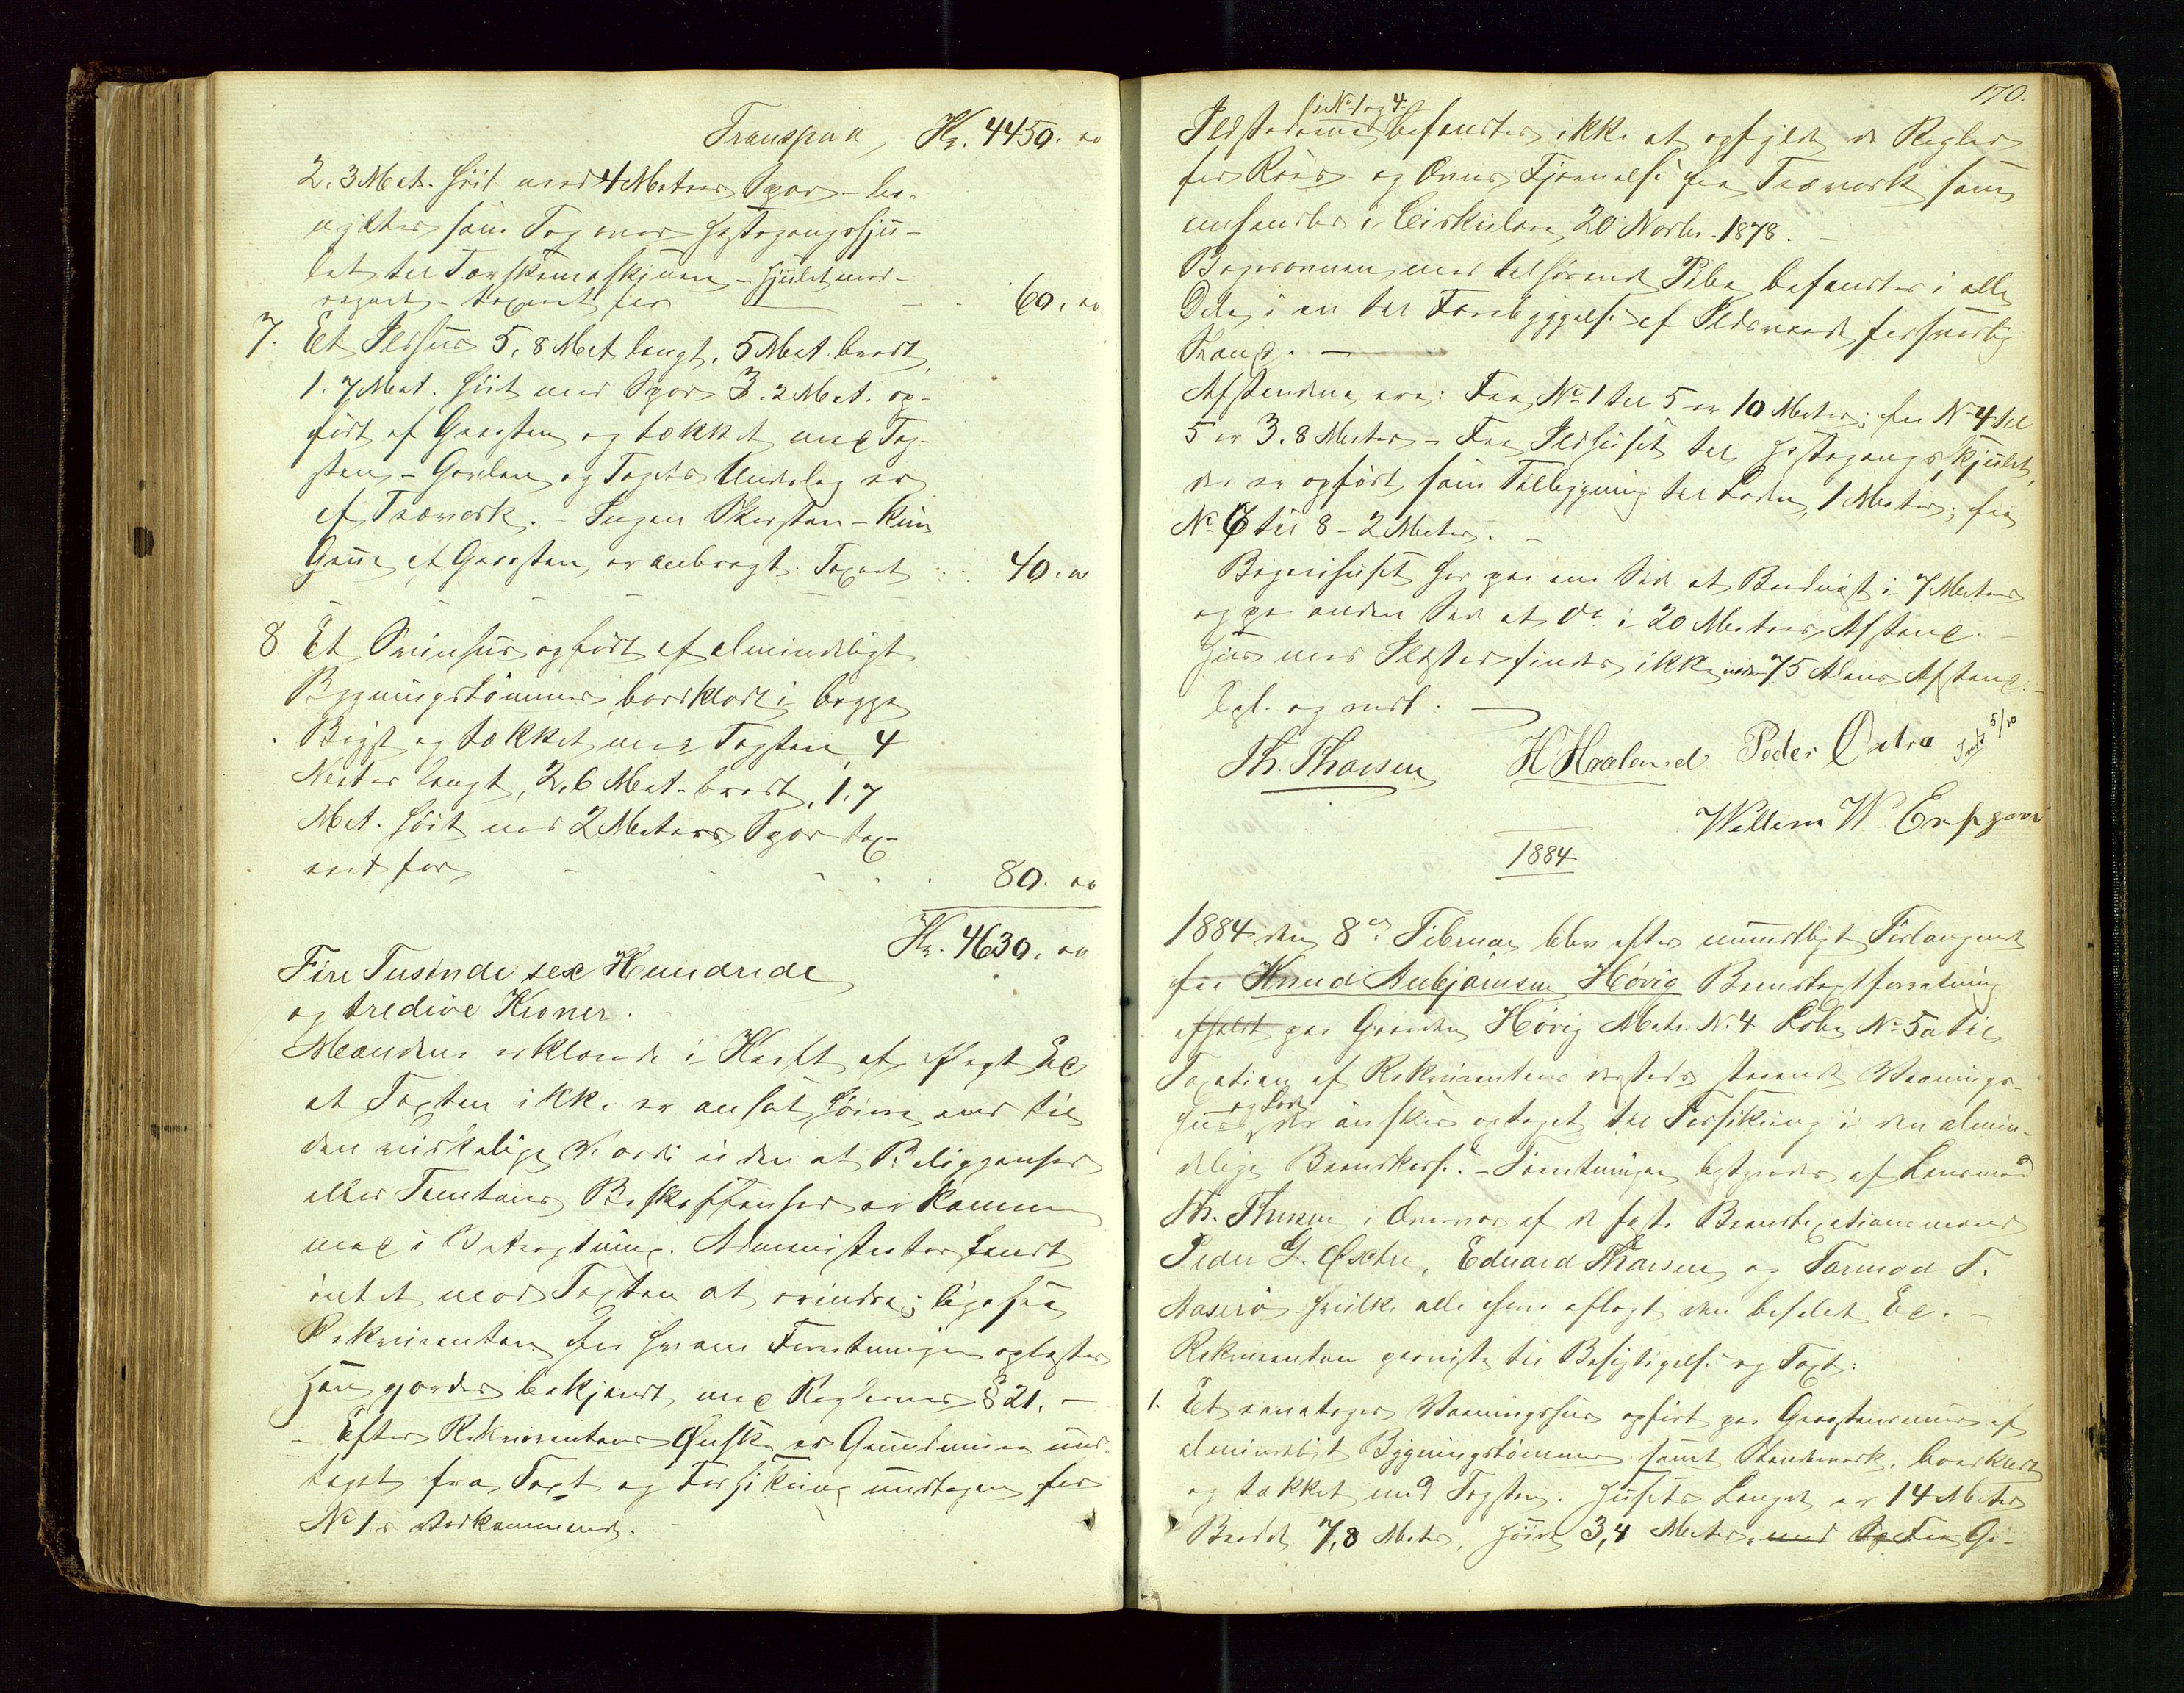 Transport, Kr. 4450. 00
2.3 Met. høit med 4 Meters Spær – be-
nyttes som Tag over Hestegangshju-
let til Tærskemaskinen – Hjulet med-
regnet – taxeret for 60. 00
7. Et Ildhus 5,8 Met. langt, 5 Met. bredt,
1.7 Met. høit med Spær 3.2 Met. op-
ført af Graasten og tækket med Tag-
sten, – Gavlen og Tagets Underlag er
af Træværk. – Ingen Skorsten – kun
Grue af Graasten er anbragt. Taxeret 40. 00
8 Et Svinehus opført af almindeligt
Bygningstømmer, bordklædt i begge
Bigst og tækket med Tagsten, 4
Meter langt, 2,6 Met. bredt, 1,7
Met. høit med 2 Meters Spær tax-
eret for 80. 00
Kr. 4630. 00
Fire Tusinde sex Hundrede
og tredive Kroner.
Mændene erklærede i Kraft af aflagt Ed
at Taxten ikke er ansat høiere end til
den virkelige Værdi uden at Beliggenhed
eller Tomtens Beskaffenhed er kommen
med i Betragtning. Administrator fandt
intet mod Taxten at erindre; ligesaa
Rekvirenten for hvem Forretningen oplæstes
Han gjordes bekjendt med Reglernes § 21. –
– Efter Rekvirentens Ønske er Grundmuren und-
taget fra Taxt og Forsikring undtagen for
No 1s Vedkommende. –
170.
i No 1 og 4
Ildstederne befandtes ikke at opfylde de Regler
for Rørs og Ovnes Fjernelse fra Træværk som
omhandles i Cirkulære 20 Novbr. 1878. –
Bagerovnen med tilhørende Pibe befandtes i alle
Dele i en til Forebyggelse af Ildsvaade forsvarlig
Stand. –
Afstandene ere: Fra No 1 til 5 er 10 Meter; fra No 4 til
5 er 3.8 Meter – Fra Ildhuset til Hestegangshjulet,
der er opført som Tilbygning til Laden, 1 Meter; fra
No 6 til 8 – 2 Meter. –
Bagerihuset har paa ene Side et Baadnøst i 7 Meters
og paa anden Side et do i 20 Meters Afstand. –
Hus med Ildsted findes ikke inden 75 Alens Afstand. –
Oplæst og vedt.
Th. Thorsen H Haaland Peder Østrå 5/10
Willem W
1884
1884 den 8de Februar blev efter mundtligt Forlangende
fra Knud Aubjørnsen Høvig Brandtaxtforretning
afholdt paa Gaarden Høvig Matr. No. 4 Løbe No 5a til
Taxation af Rekvirentens dersteds staaende Vaanings-
og Lade
hus der ønskes optaget til Forsikring i den almin-
delige Brandkasse. – Forretningen bestyredes af Lensmand
Th. Thorsen i Overvær af de faste Brandtaxationsmænd
Peder G. Østre, Edvard Thorsen og Tormod T.
Naserø hvilke alle have aflagt den befalede Ed. –
Rekvirenten paaviste til Besigtigelse og Taxt:
1. Et eenetages Vaaningshus opført paa Graastensmur af
almindeligt Bygningstømmer samt Stendværk, bordklædt
og tækket med Tagsten. Husets Længde er 14 Meter
Bredde 7,8 Meter, Høide 3,4 Meter, med Sp Fra Ge-